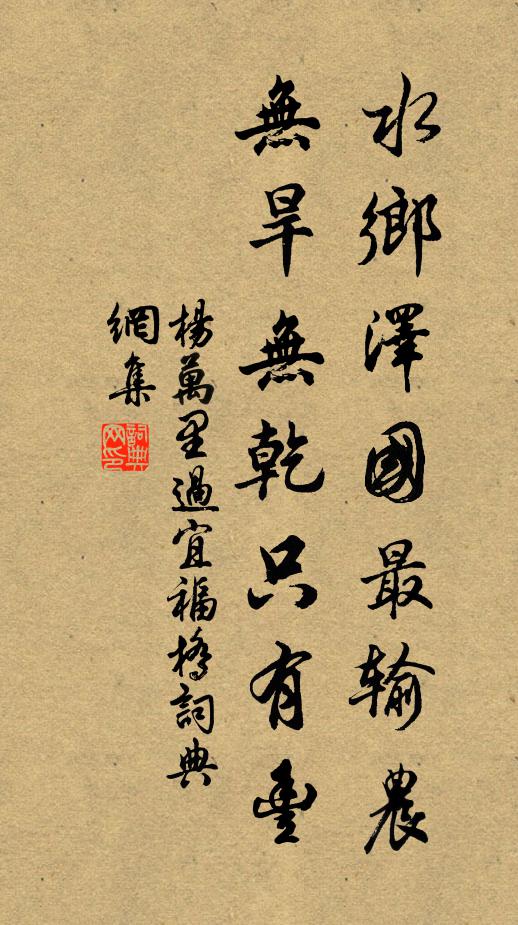 水鄉澤國最輸農
無旱無乾只有豐
楊萬里過宜福橋詞典
網集
詞典
网印